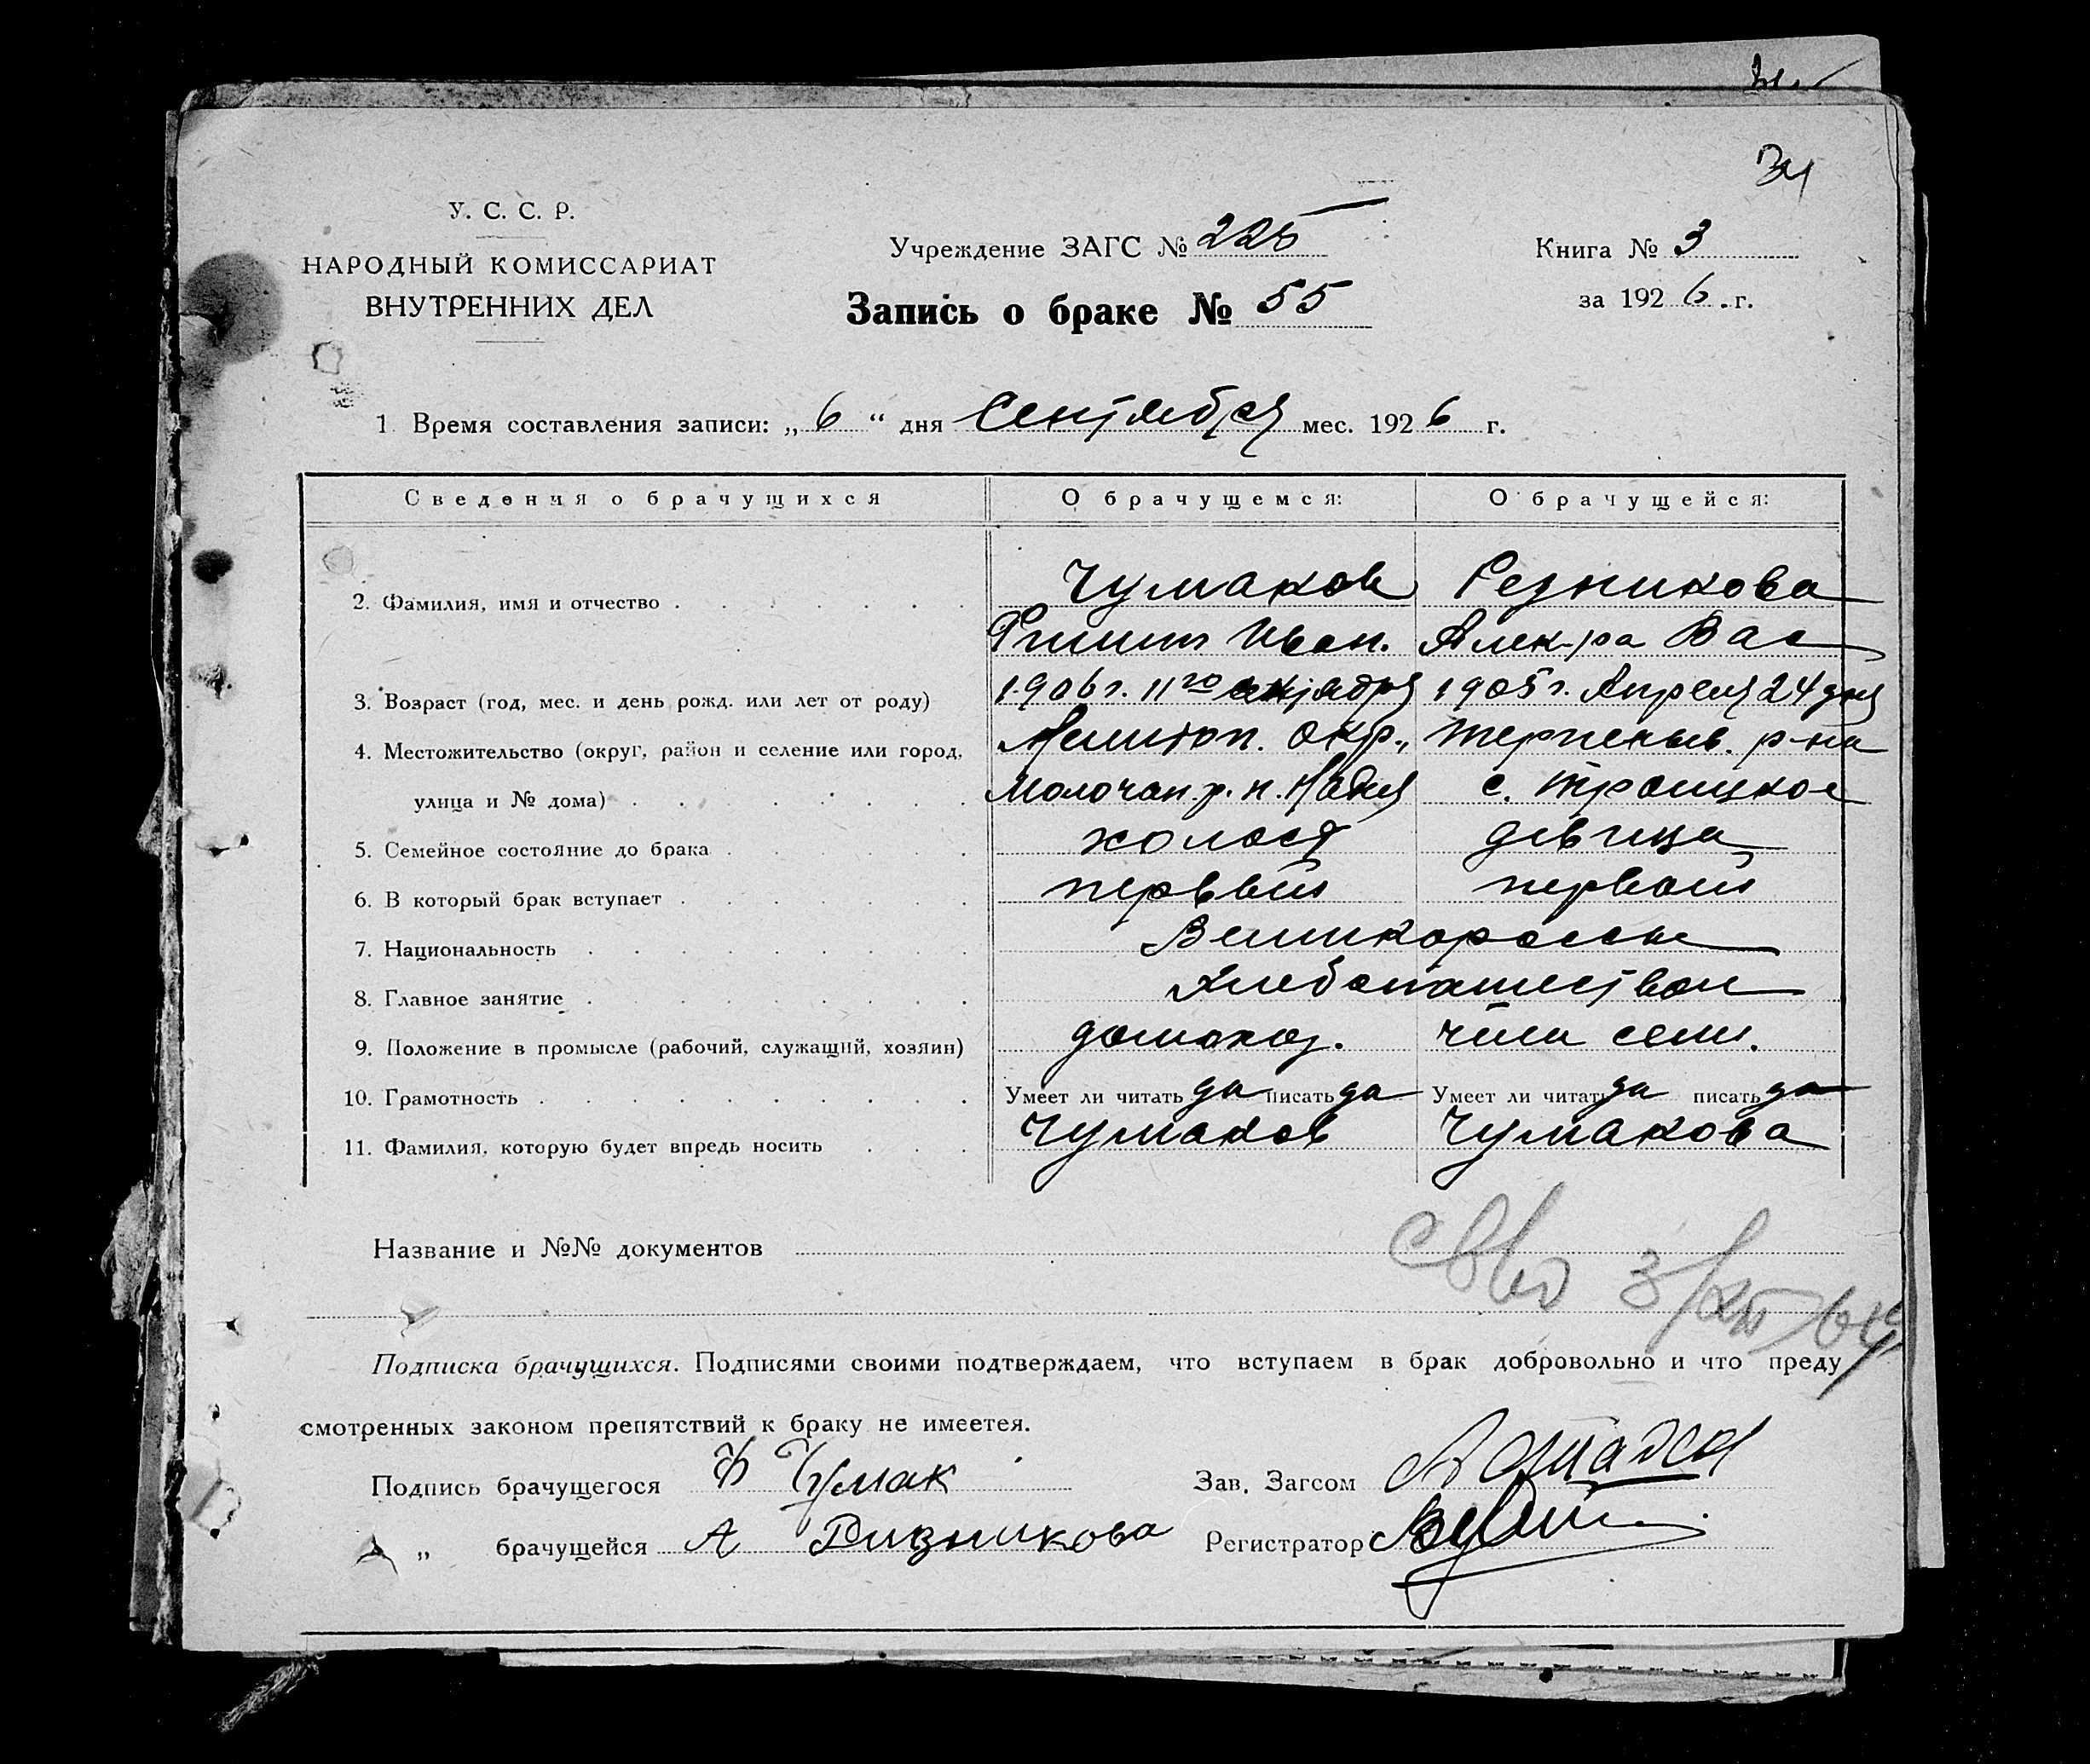 34
У. С. С. Р.
НАРОДНЫЙ КОМИССАРИАТ
ВНУТРЕННИХ ДЕЛ
Учреждение ЗАГС № 225
Запись о браке № 55
Книга № 3
за 1926 г.
1 Время составления записи: „6“ дня Сентября мес. 1926 г.
Сведения о брачущихся О брачущемся: О брачущейся:
2. Фамилия, имя и отчество Чумаков Резникова
Филип Иван. Алек-ра Вас
3. Возраст (год, мес. и день рожд. или лет от роду) 1906 г. 11го октября 1905 г. Апреля 24 дня
4. Местожительство (округ, район и селение или город, Мелитоп. Окр., Терпеньев. р-на
улица и № дома) Молочан р. с. Троицкое
5. Семейное состояние до брака холост девица
6. В который брак вступает первый первый
7. Национальность Великороссы
8. Главное занятие Хлебопашеством
9. Положение в промысле (рабочий, служащий, хозяин) домохоз. член семи.
10. Грамотность Умеет ли читать да писать да Умеет ли читать да писать да
11. Фамилия, которую будет впредь носить Чумаков Чумакова
Название и №№ документов
Подписка брачущихся. Подписями своими подтверждаем, что вступаем в брак добровольно и что преду
смотренных законом препятствий к браку не имеетея.
Подпись брачущегося Ф Чумак Зав. Загсом
„ брачущейся А Ризникова Регистратор